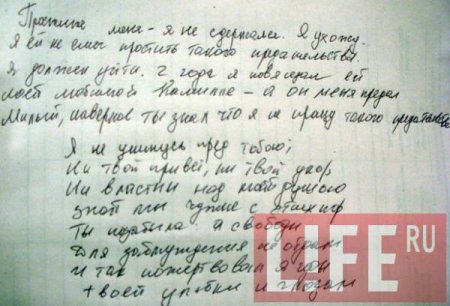 Простите меня - я не сдержался. Я ухожу.
Я ей не смог простить такого предательства
Я должен уйти. 2 года я ей
моей любимой - а он меня предал
Милый, наверное ты знал что я не прощу такого предательства
Я не унижусь пред тобою;
Ни твой привет, ни твой укор
Не властны над моей душою
Знай мы чужие с этих пор
Ты позабыла: я свободы
Для заблужденья не отдам
И так пожертвовал я годы
Твоей улыбке и глазам
LIFE RU